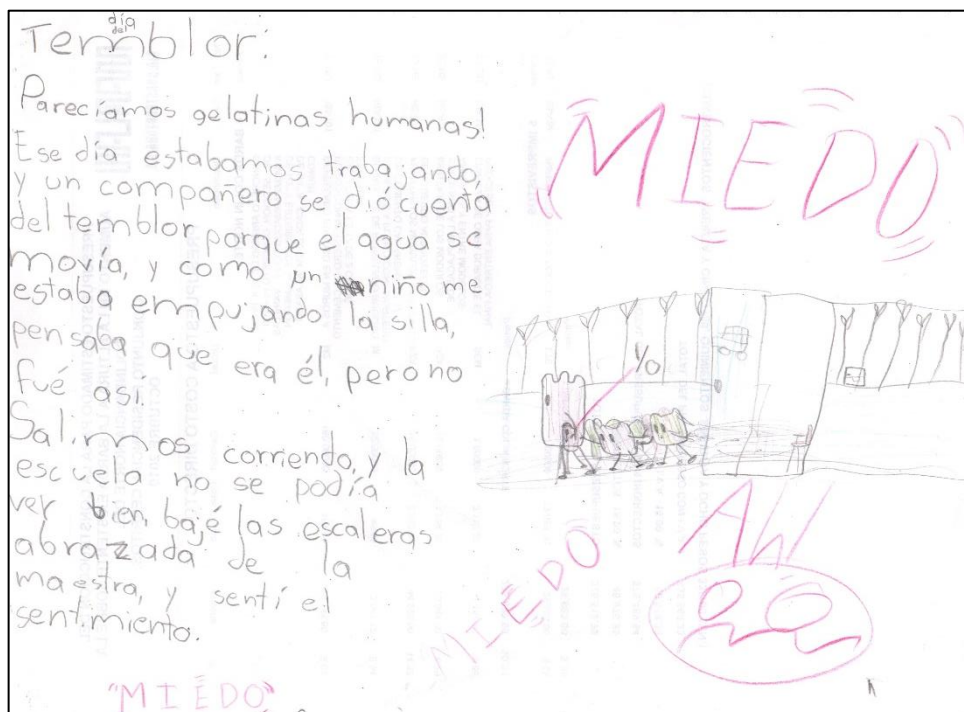 día
del
Temblor:
Parecíamos gelatinas humanas!
Ese día estabamos trabajando,
y un compañero se dió cuenta
del temblor porque el agua se
movía, y como un niño me
estaba empujando la silla,
pensaba que era él, pero no
fué así.
Salimos corriendo, y la
escuela no se podía
ver bien, bajé las escaleras
abrazada de la
maestra, y sentí el
sentimiento.
"MIEDO"
MIEDO
Yo
MIEDO